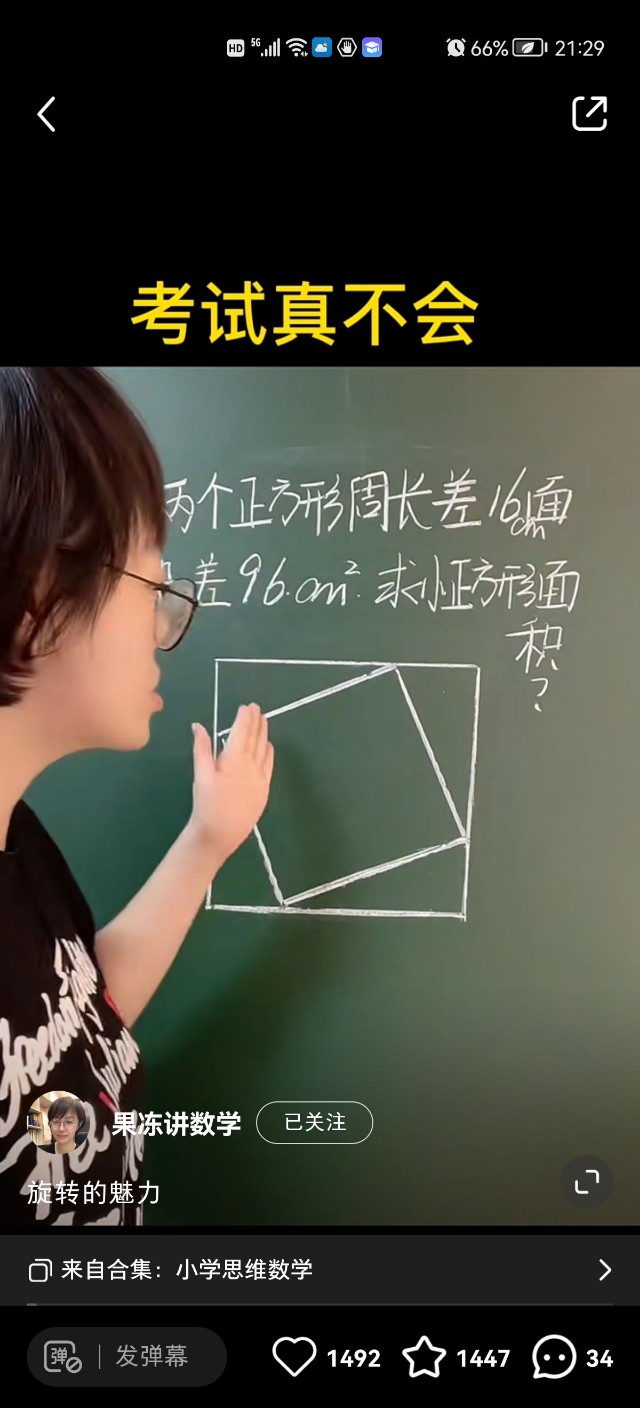 HD 5G 66% 21:29
考试真不会
两个正方形周长差16cm面
差96.cm². 求小正方形面
积
?
果冻讲数学 已关注
旋转的魅力
来自合集：小学思维数学
弹 发弹幕 1492 1447 34